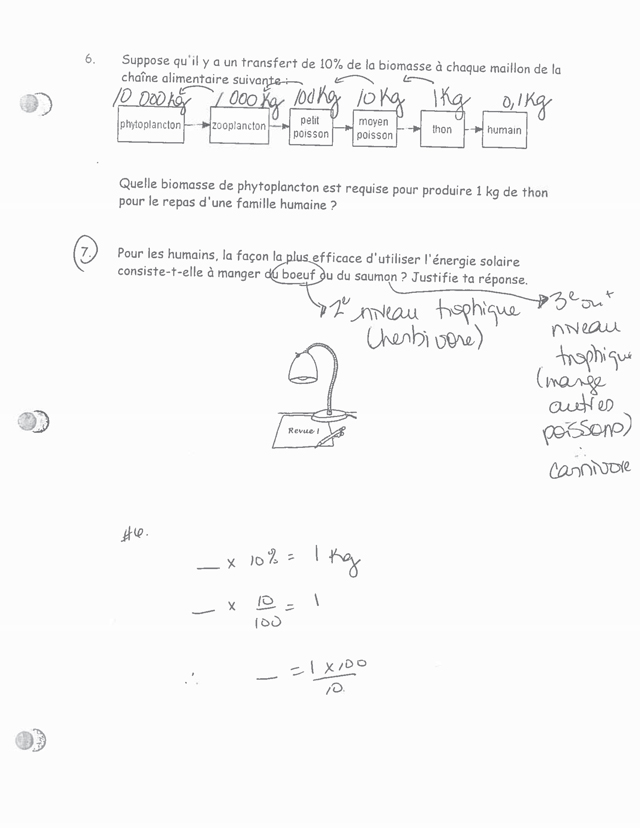 6. Suppose qu'il y a un transfert de 10% de la biomasse à chaque maillon de la
chaîne alimentaire suivante :
10 000kg 1 000 kg 100kg 10 kg 1kg 0,1kg
phytoplancton zooplancton petit poisson moyen poisson thon humain
Quelle biomasse de phytoplancton est requise pour produire 1 kg de thon
pour le repas d'une famille humaine ?
7. Pour les humains, la façon la plus efficace d'utiliser l'énergie solaire
consiste-t-elle à manger du boeuf ou du saumon ? Justifie ta réponse.
2e niveau trophique
(herbivore)
3e ou +
niveau
trophique
(mange
autres
poissons)
∴
carnivore
Revue !
#6.
__ x 10% = 1 kg
__ x 10/100 = 1
∴ __ = 1 x 100/10.